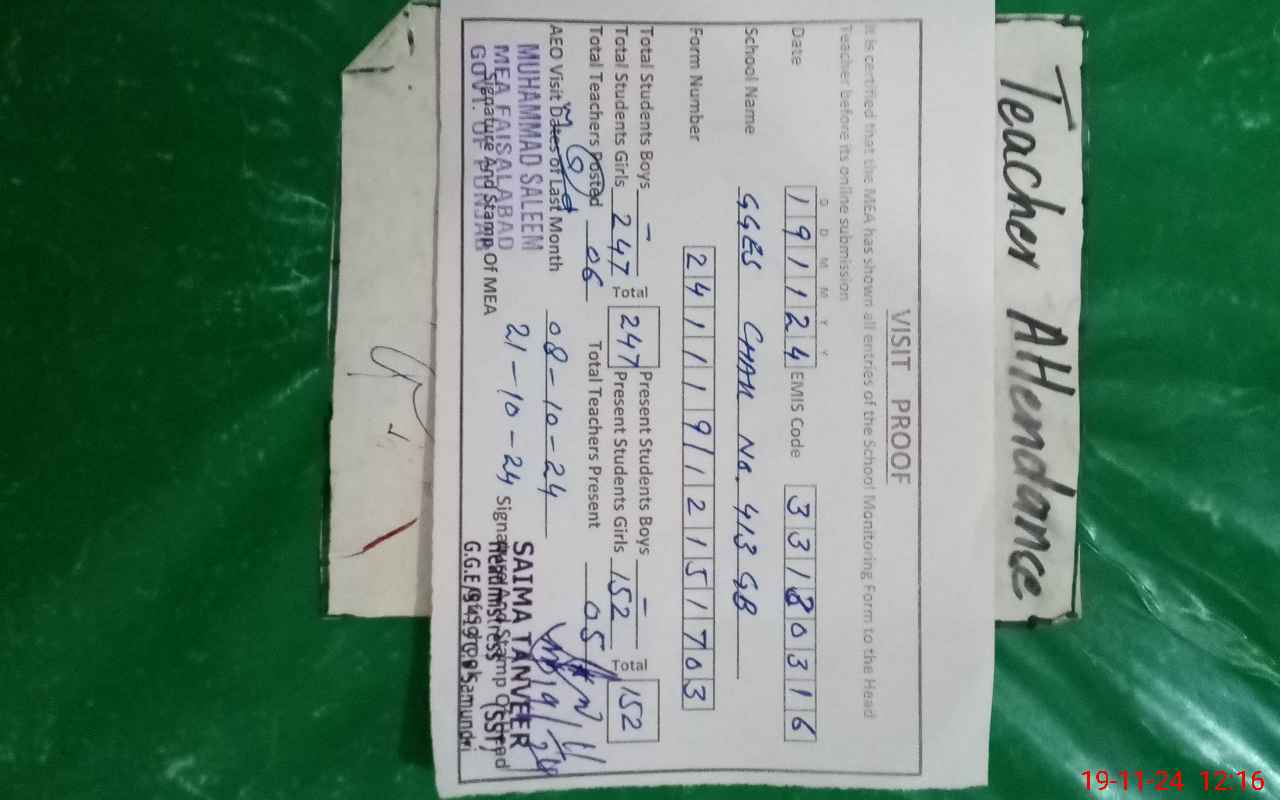 Teacher Attendance
VISIT PROOF
It is certified that the MEA has shown all entries of the School Monitoring Form to the Head
Teacher before its online submission
D D M M Y Y
Date 191124 EMIS Code 33180316
School Name GGES CHAK No. 413 GB
Form Number 24111912151703
Total Students Boys - Total 247 Present Students Boys - Total 152
Total Students Girls 247 Present Students Girls 152
Total Teachers Posted 06 Total Teachers Present 05
AEO Visit Dates of Last Month 08-10-24
21-10-24
MUHAMMAD SALEEM
MEA FAISALABAD
GOVT. OF PUNJAB
Signature And Stamp Of MEA
Signature And Stamp Of Head
SAIMA TANVEER
Headmistress (SST)
19/11/24
19-11-24 12:16